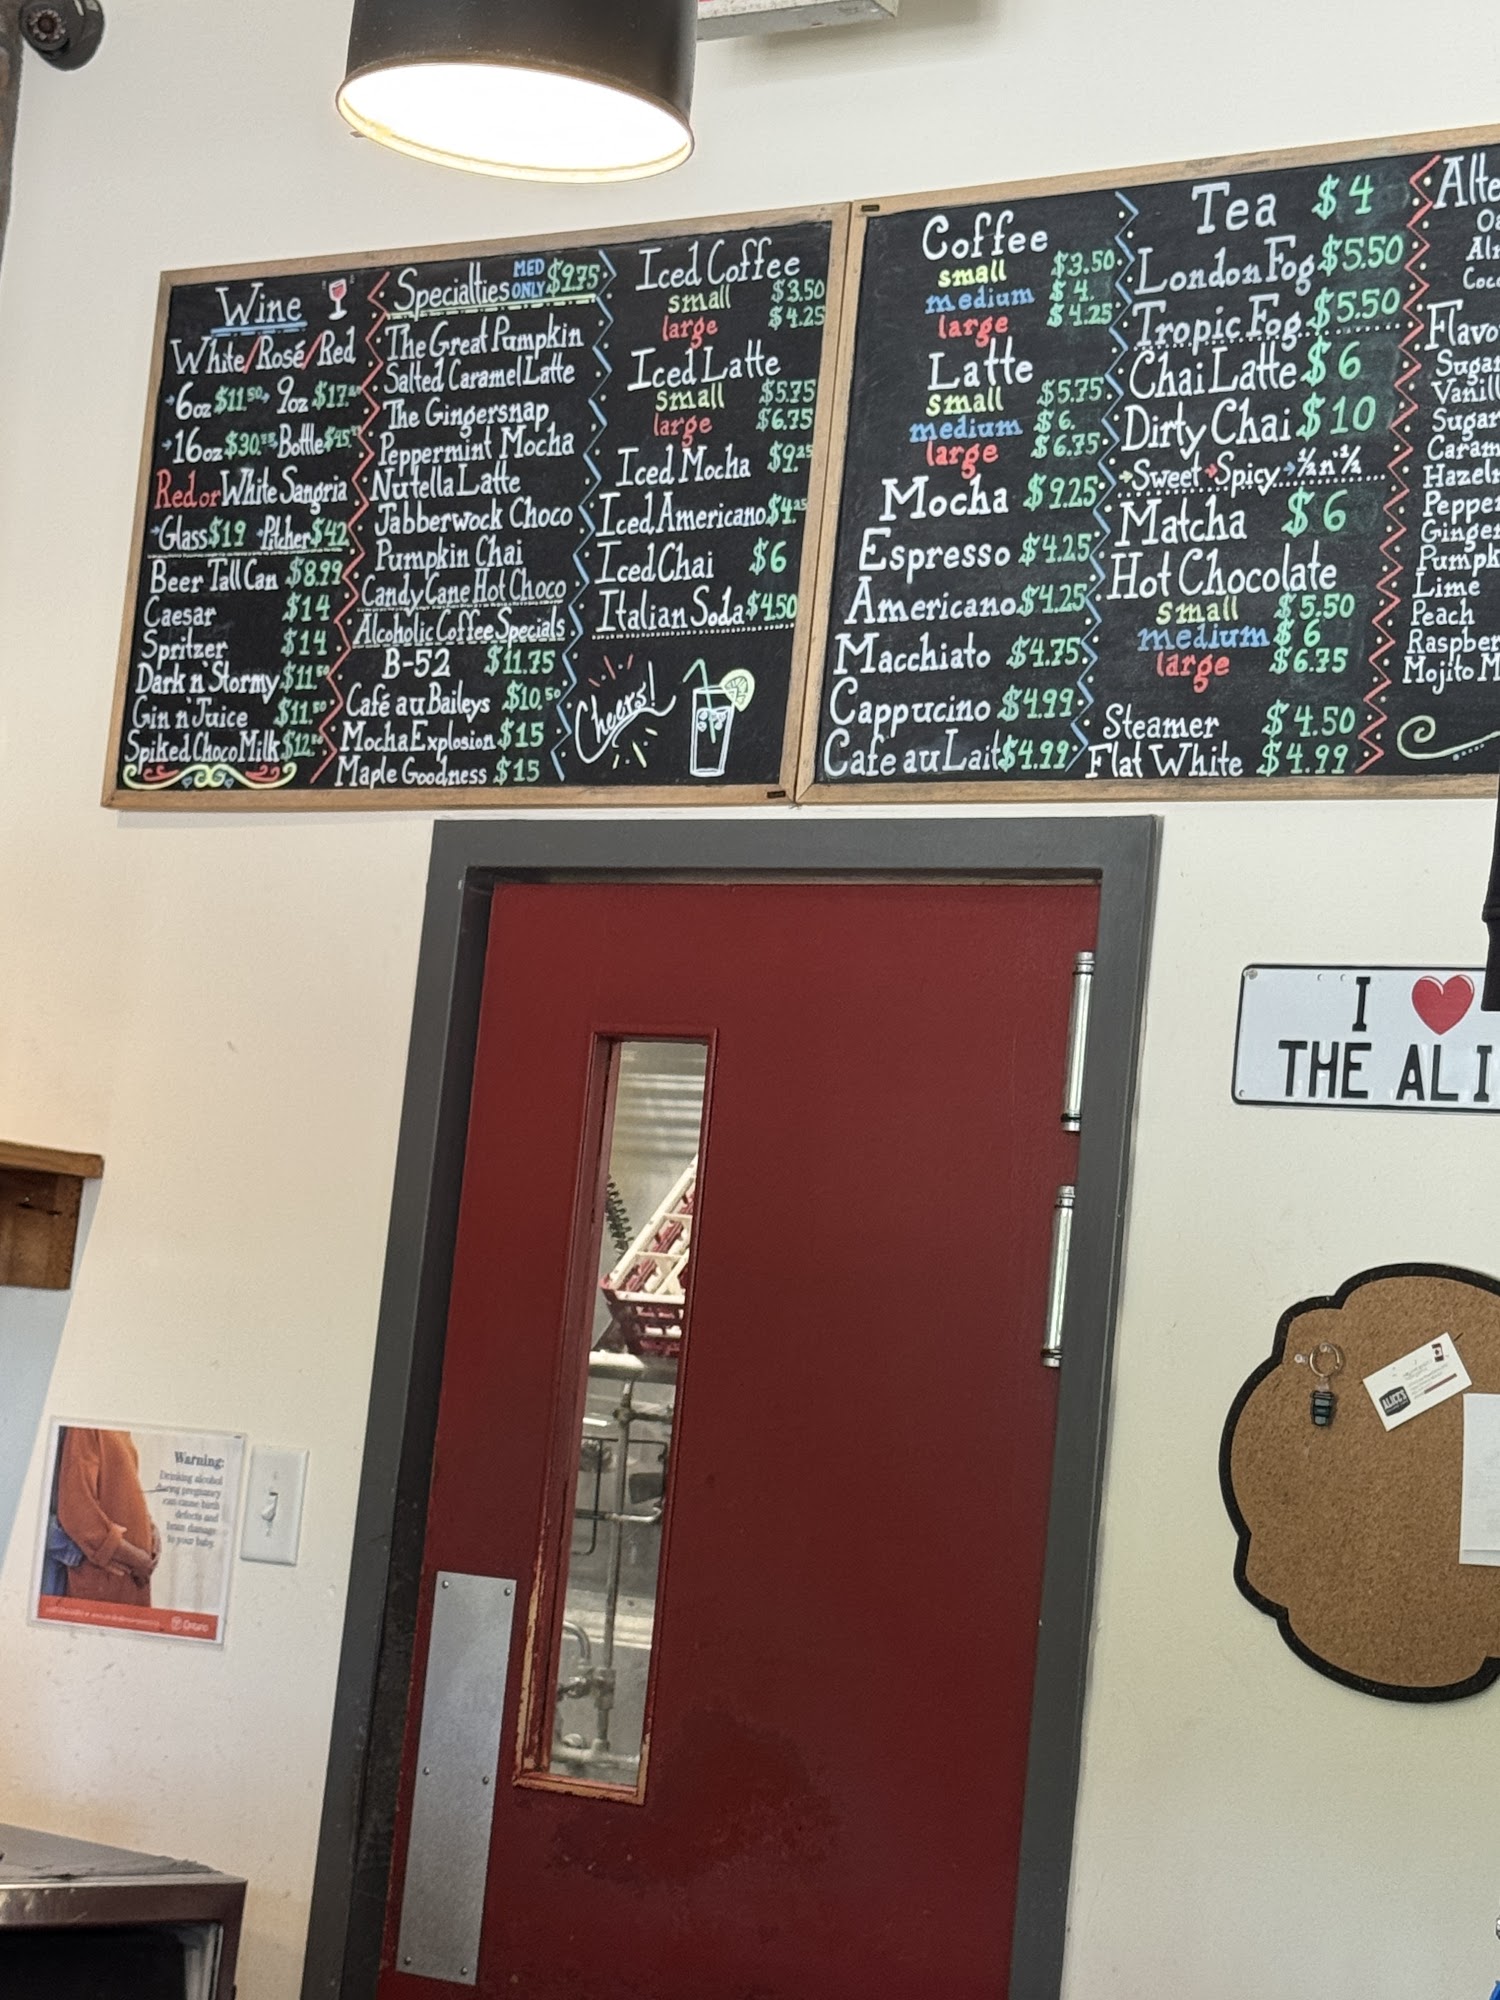 Wine
White/Rosé/Red
6oz $11.50 9oz $17.
16oz $30. Bottle
Red or White Sangria
Glass $19 Pitcher $42
Beer Tall Can $8.99
Caesar $14
Spritzer $14
Dark n' Stormy $11.50
Gin n' Juice $11.50
Spiked Choco Milk $12.50
Specialties MED ONLY $9.75
The Great Pumpkin
Salted Caramel Latte
The Gingersnap
Peppermint Mocha
Nutella Latte
Jabberwock Choco
Pumpkin Chai
Candy Cane Hot Choco
Alcoholic Coffee Specials
B-52 $11.75
Café au Baileys $10.50
Mocha Explosion $15
Maple Goodness $15
Iced Coffee
small $3.50
large $4.25
Iced Latte
small $5.75
large $6.75
Iced Mocha $9.25
Iced Americano $4.25
Iced Chai $6
Italian Soda $4.50
Cheers!
Coffee
small $3.50
medium $4.
large $4.25
Latte
small $5.75
medium $6.
large $6.75
Mocha $9.25
Espresso $4.25
Americano $4.25
Macchiato $4.75
Cappucino $4.99
Cafe au Lait $4.99
Tea $4
London Fog $5.50
Tropic Fog $5.50
Chai Latte $6
Dirty Chai $10
Sweet Spicy ½ n' ½
Matcha $6
Hot Chocolate
small $5.50
medium $6
large $6.75
Steamer $4.50
Flat White $4.99
Alte
Oa
Alm
Coco
Flavo
Sugar
Vanill
Sugar
Caram
Hazeln
Pepper
Ginger
Pumpk
Lime
Peach
Raspber
Mojito M
I ♥
THE ALI
ALICE'S
Warning:
Drinking alcohol
during pregnancy
can cause birth
defects and
brain damage
to your baby.
Ontario